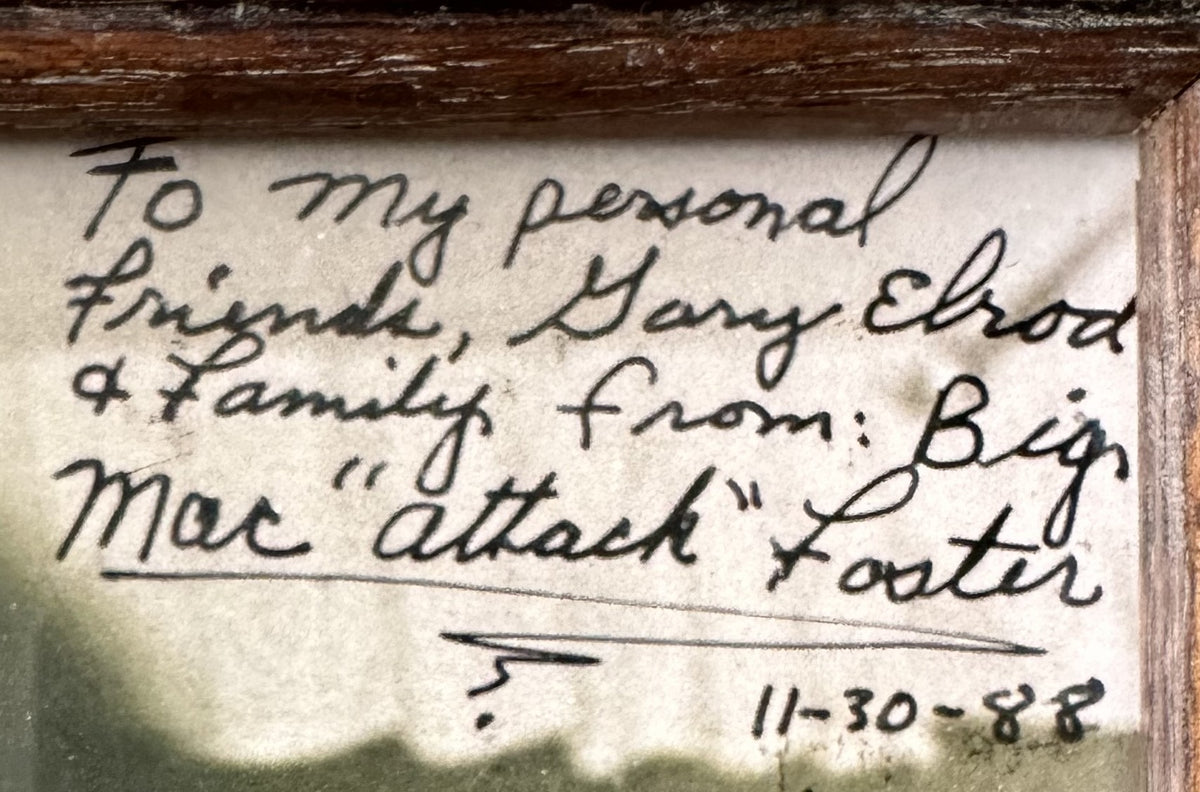 To my personal
Friends, Gary Elrod
& Family from: Big
Mac "attack" Foster
11-30-88